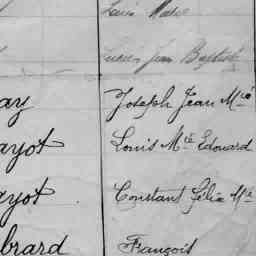 Louis
Jean Baptiste
ay Joseph Jean Mie
ayot Louis Mie Edouard
ayot Constant Félix Mie
brard François